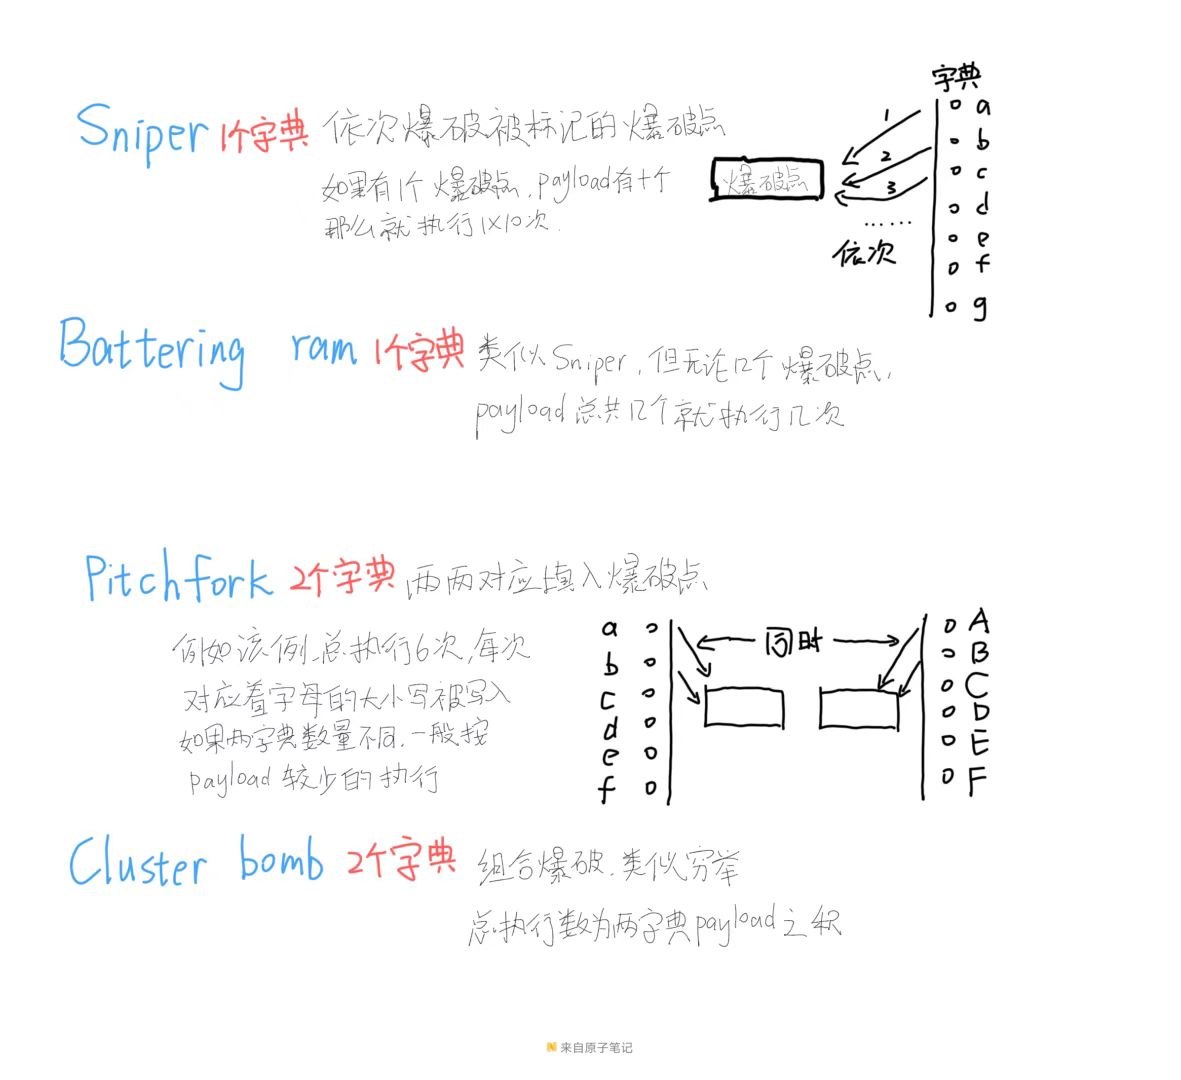 Sniper 1个字典 依次爆破被标记的爆破点
如果有1个爆破点,payload有十个
那么就执行1x10次.
字典
a
b
c
d
e
f
g
1
2
3
爆破点
……
依次
Battering ram 1个字典 类似Sniper,但无论几个爆破点,
payload总共几个就执行几次
Pitchfork 2个字典 两两对应填入爆破点
例如该例,总执行6次,每次
对应着字母的大小写被写入
如果两字典数量不同,一般按
payload较少的执行
a
b
c
d
e
f
同时
A
B
C
D
E
F
Cluster bomb 2个字典 组合爆破,类似穷举
总执行数为两字典payload之积
来自原子笔记